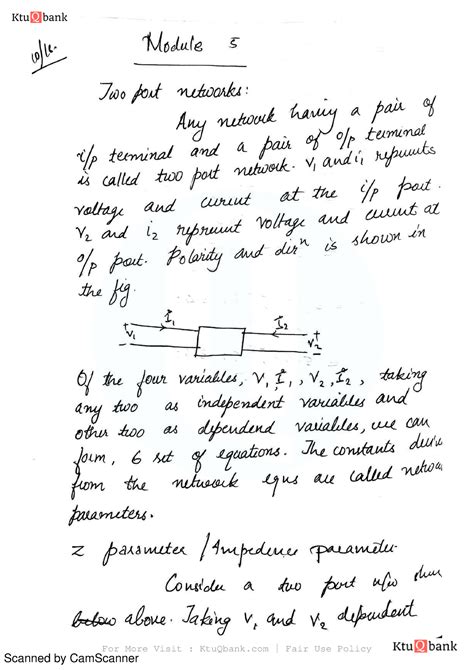 KtuQbank
KtuQbank
Module 5
Two port networks:
Any network having a pair of
i/p terminal and a pair of o/p terminal
is called two port network. V₁ and i₁ represents
voltage and current at the i/p port.
V₂ and i₂ represent voltage and current at
o/p port. Polarity and dirⁿ is shown in
the fig.
I₁ I₂
+ V₁ − + V₂ −
Of the four variables, V₁ I₁, V₂, I₂, taking
any two as independent variables and
other two as dependend variables, we can
form, 6 set of equations. The constants
from the network eqns are called
parameters.
Z parameter / Impedence parameter
Consider a two port n/w
below above. Taking V₁ and V₂ dependent
For More Visit : KtuQbank.com | Fair Use Policy
KtuQbank
Scanned by CamScanner